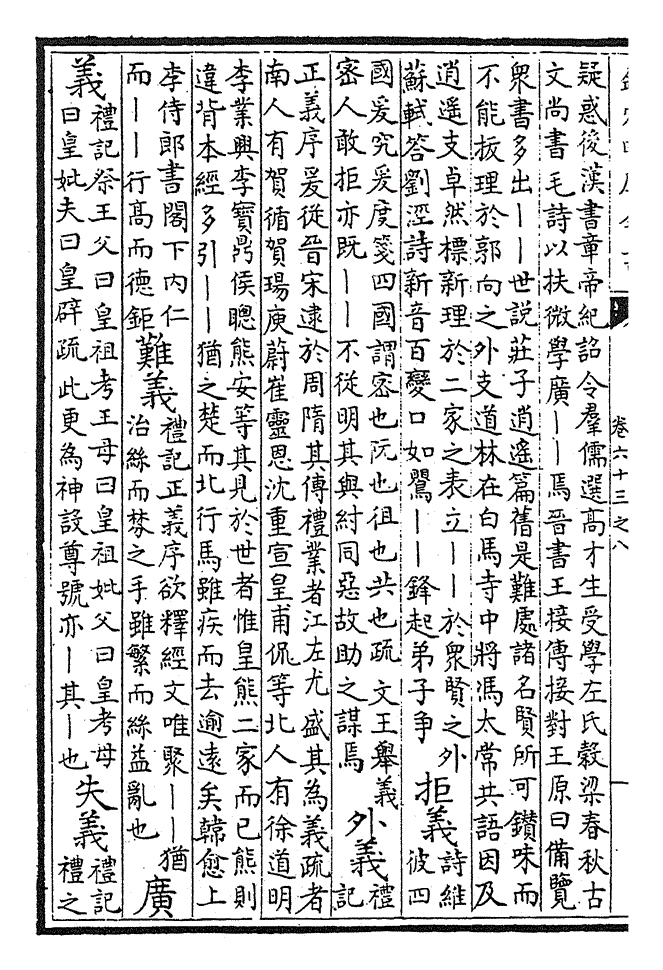 卷六十三之八
疑惑後漢書章帝紀詔令羣儒選高才生受學左氏穀梁春秋古
文尚書毛詩以扶微學廣丨丨焉晉書王接傳接對王原曰備覽
衆書多出丨丨世説莊子逍遥篇舊是難處諸名賢所可鑚味而
不能拔理於郭向之外支道林在白馬寺中將馮太常共語因及
逍遥支卓然標新理於二家之表立丨丨於衆賢之外
蘇軾答劉涇詩新音百變口如鸎丨丨鋒起弟子爭
拒義
詩維
彼四
國爰究爰度箋四國謂密也阮也徂也共也疏文王舉義
密人敢拒亦既丨丨不從明其與紂同惡故助之謀焉
外義
禮
記
正義序爰從晉宋逮於周隋其傳禮業者江左尤盛其為義疏者
南人有賀循賀瑒庾蔚崔靈恩沈重宣皇甫侃等北人有徐道明
李業興李寶鼎侯聰熊安等其見於世者惟皇熊二家而已熊則
違背本經多引丨丨猶之楚而北行馬雖疾而去逾遠矣韓愈上
李侍郎書閣下内仁
而丨丨行高而德鉅
難義
禮記正義序欲釋經文唯聚丨丨猶
治絲而棼之手雖繁而絲益亂也
廣
義
禮記祭王父曰皇祖考王母曰皇祖妣父曰皇考母
曰皇妣夫曰皇辟疏此更為神設尊號亦丨其丨也
失義
禮記
禮之